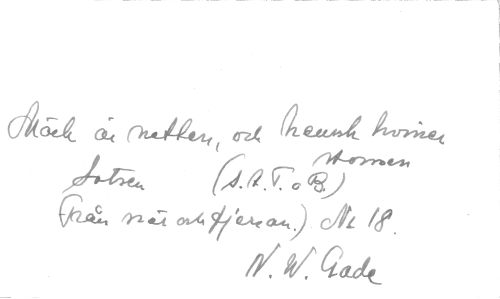 Mörk är natten, och hemsk hviner
stormen
Lotsen (S. A. T. o B.)
(Från när och fjerran.) No 18.
N. W. Gade